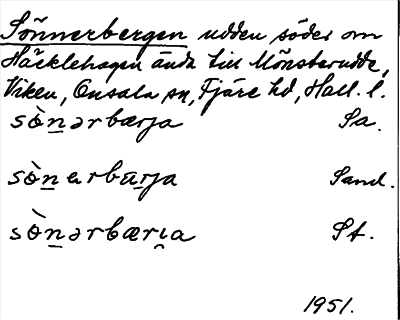 Sönnerbergen udden söder om
Häcklehagen ända till Mönsterudde,
Viken, Onsala sn, Fjäre hd, Hall. l.
sò̱nərbærja Sa.
sò̱nɐrbærja Sand.
sò̱nərbærı̯a St.
1951.